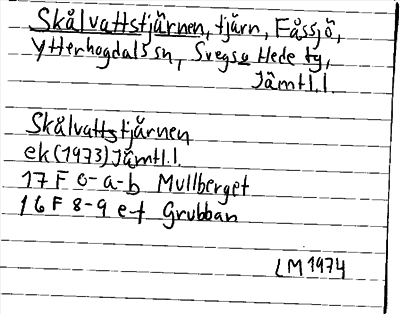 Skålvattstjärnen, tjärn, Fåssjö,
Ytterhogdals sn, Svegs o Hede tg,
Jämtl.l.
Skålvattstjärnen
ek (1973) Jämtl.l.
17 F 0-a-b Mullberget
16 F 8-9 e-f Grubban
LM 1974